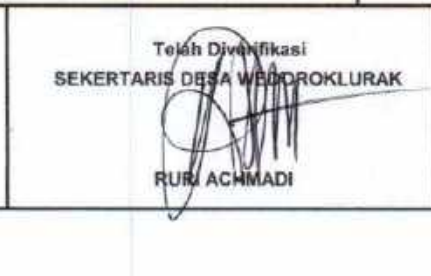 Telah Diverifikasi
SEKERTARIS DESA WEDOROKLURAK
RURI ACHMADI